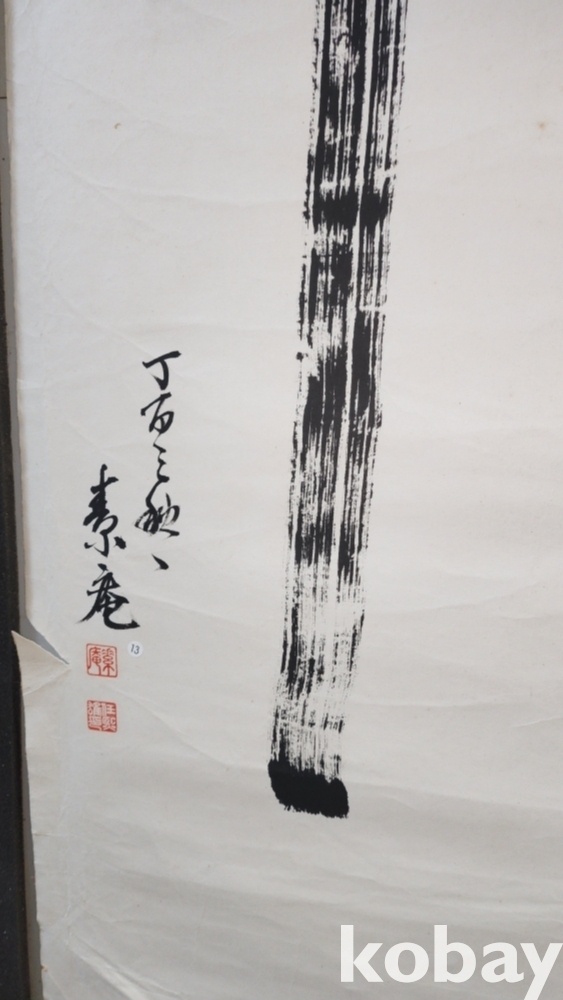 丁酉之秋
素庵
素庵
13
kobay